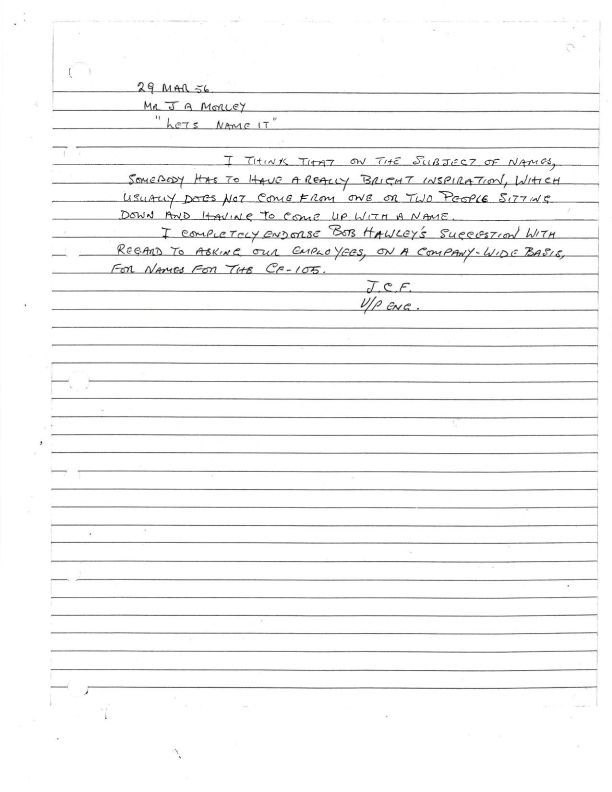 29 MAR 56
MR J A MORLEY
"LETS NAME IT"
I THINK THAT ON THE SUBJECT OF NAMES,
SOMEBODY HAS TO HAVE A REALLY BRIGHT INSPIRATION, WHICH
USUALLY DOES NOT COME FROM ONE OR TWO PEOPLE SITTING
DOWN AND HAVING TO COME UP WITH A NAME.
I COMPLETELY ENDORSE BOB HAWLEY'S SUGGESTION WITH
REGARD TO ASKING OUR EMPLOYEES, ON A COMPANY-WIDE BASIS,
FOR NAMES FOR THE CF-105.
J.C.F.
V/P ENG.